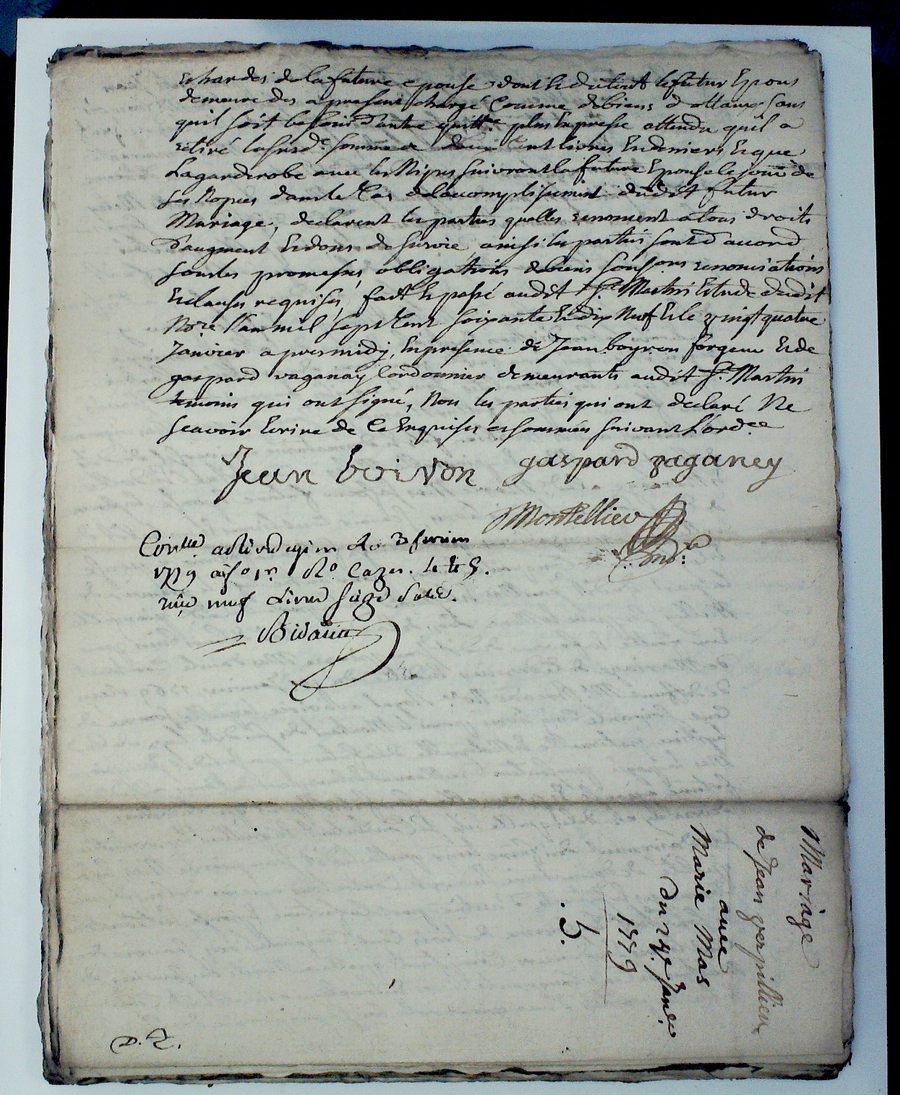 et hardes de la future epouse dont et du tout le futur Epous
demeure des apresent chargé comme de biens dottaux sans
quil soit besoin d'autre quittce plus Expresse attendu qu'il a
retiré la susde somme de deux Cent livres En deniers Et que
La garderobe avec les Nipes suivront la future Epouse le jour de
ses Nopces dans le Cas de laccomplissement dudit futur
Mariage, declarent les parties quelles renoncent a tous droits
d'augment Et dons de survie ainsi les parties sont d'accord
sous les promesses, obligations de biens soumissions renonciations
Et clauses requises, fait Et passé audit St Martin Etude dudit
Nore l'an mil sept Cent soixante Et dix Neuf Et le vingt quatre
Janvier apres midy, En presence de Jean boyron forgeur Et de
gaspard vaganay Cordonnier demeurants audit St Martin
temoins qui ont signé, Non les parties qui ont declaré Ne
sçavoir Ecrire de Ce Enquises et sommées suivant L'ordce
Jean boivon gaspard vaganey
Montellier
Conllé a Rivedegier le 3 fevrier
1779
reçu neuf Livres sols
Bidault
Mariage
de Jean verpillieu
avec
Marie Mas
Du 24e Janer
1779
. 5.
D. Z.